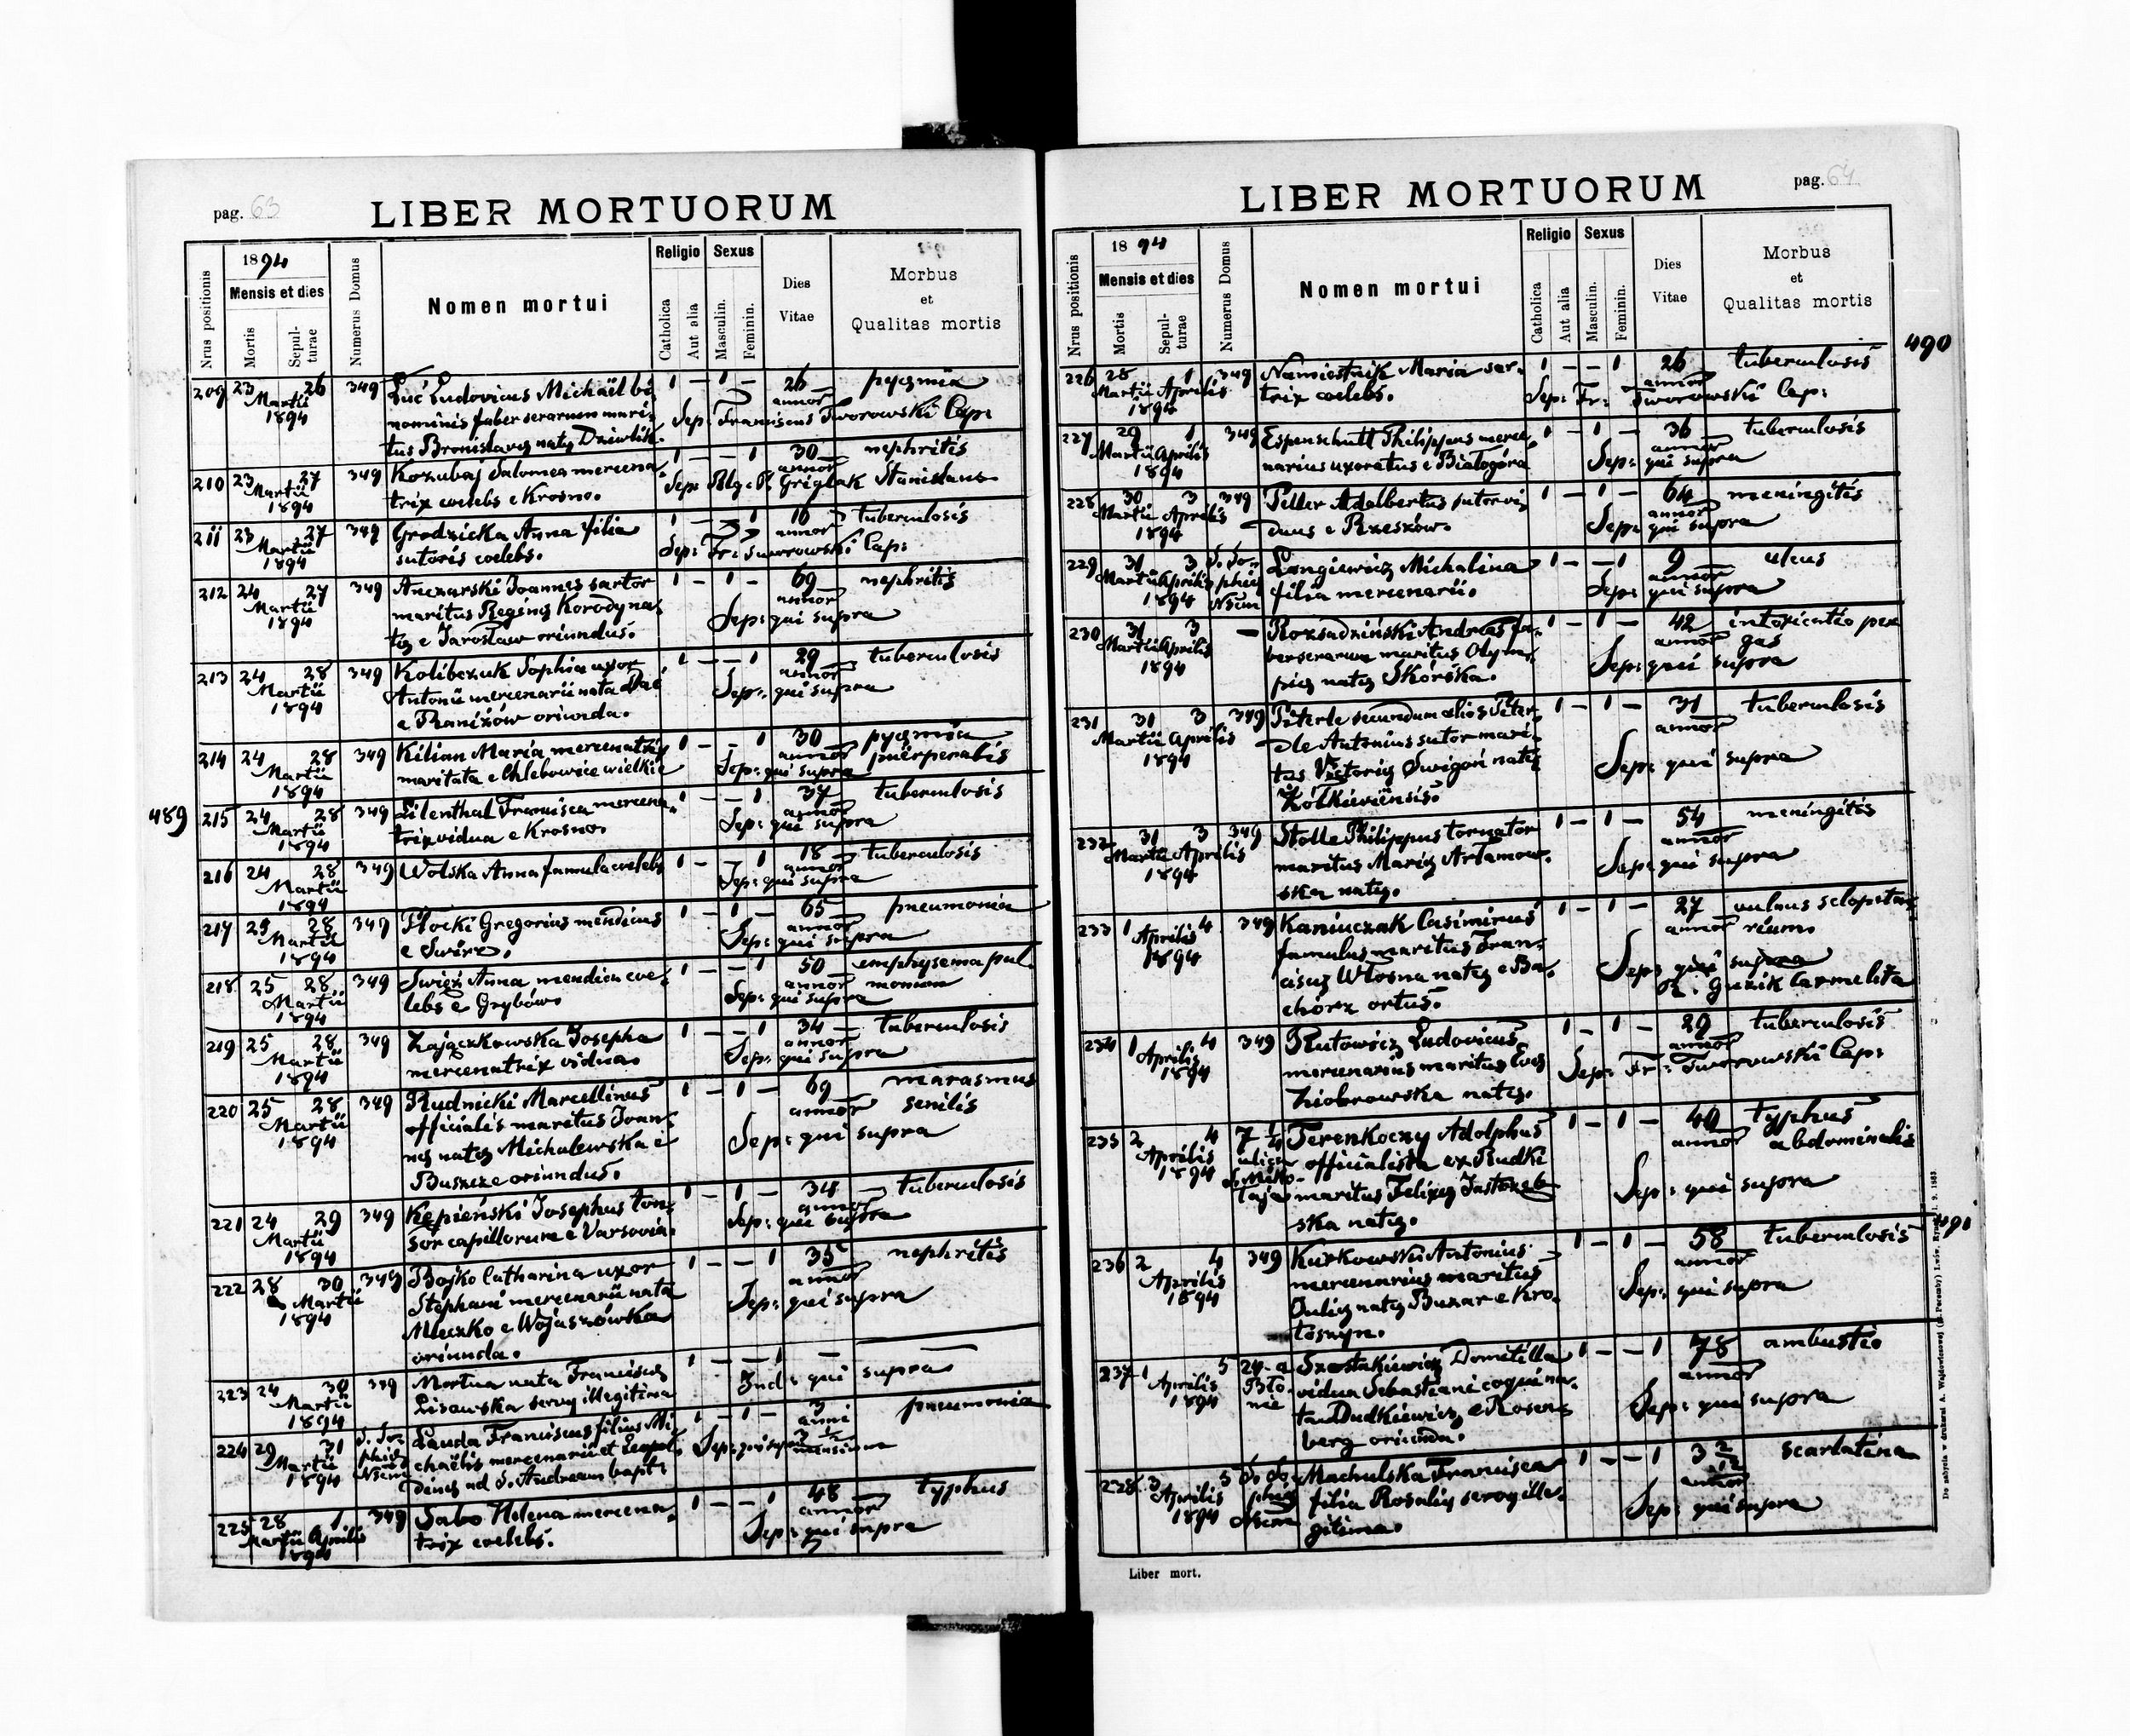 pag. 63
LIBER MORTUORUM
Nrus positionis
1894
Mensis et dies
Mortis
Sepul-
turae
Numerus Domus
Nomen mortui
Religio
Catholica
Aut alia
Sexus
Masculin.
Feminin.
Dies
Vitae
Morbus
et
Qualitas mortis
209 23 26 349 Łuć Ludovicus Michaël bi- 1 – 1 – 26 pyaemia
Martii nominis faber serarum mari- annor
1894 tus Bronislavae natae Sep: Franciscus Tworowski Cap:
210 23 27 349 Kozubaj Salomea mercena- 1 – – 1 30 nephritis
Martii trix coelebs e Krosno. annor
1894 Sep: Griglak Stanislaus
211 23 27 349 Grodzicka Anna filia 1 – – 1 16 tuberculosis
Martii sutoris coelebs. annor
1894 Sep: Fr: Tworowski Cap:
212 24 27 349 Anczarski Joannes sartor 1 – 1 – 69 nephritis
Martii maritus Reginae Korodyna annor
1894 tae e Jarosław oriundus. Sep: qui supra
213 24 28 349 Kolibczuk Sophia uxor 1 – – 1 29 tuberculosis
Martii Antonii mercenarii nata annor
1894 e Raniżów oriunda. Sep: qui supra
214 24 28 349 Kilian Maria mercenatrix 1 – – 1 30 pyaemia
Martii maritata e Chlebowice wielkie annor puerperalis
1894 Sep: qui supra
489 215 24 28 349 Lilenthal Francisca mercena- 1 – – 1 37 tuberculosis
Martii trix vidua e Krosno annor
1894 Sep: qui supra
216 24 28 349 Wolska Anna famula coelebs 1 – – 1 18 tuberculosis
Martii annor
1894 Sep: qui supra
217 25 28 349 Płocki Gregorius mendicus 1 – 1 – 65 pneumonia
Martii e Swirz. annor
1894 Sep: qui supra
218 25 28 349 Swięś Anna mendica coe- 1 – – 1 50 emphysema pul-
Martii lebs e Grybów annor monum
1894 Sep: qui supra
219 25 28 349 Zajączkowska Josepha 1 – – 1 34 tuberculosis
Martii mercenatrix vidua. annor
1894 Sep: qui supra
220 25 28 349 Rudnicki Marcellinus 1 – 1 – 69 marasmus
Martii officialis maritus Joan- annor senilis
1894 nae natae Michalewska e Sep: qui supra
Buszcze oriundus.
221 24 29 349 Kępieński Josephus ton- 1 – 1 – 34 tuberculosis
Martii sor capillorum e Varsovia. annor
1894 Sep: qui supra
222 28 30 349 Bojko Catharina uxor 1 – – 1 35 nephritis
Martii Stephani mercenarii nata annor
1894 Mleczko e Wojaszówka Sep: qui supra
oriunda.
223 24 30 349 Mortua nata Franciscae 1 – – 1 –
Martii Lisowska servae illegitima Ind: qui supra
1894
224 29 31 S. So- Lauda Franciscus filius Mi- 1 – 1 – 3 pneumonia
Martii phiae chaëlis mercenarii et Leopol- anni
1894 Nrum dinae ad S. Andream bapt: Sep: qui supra mensium
225 28 1 349 Sabo Helena mercena- 1 – – 1 48 typhus
Martii Aprilis trix coelebs. annor
1894 Sep: qui supra
pag. 64
LIBER MORTUORUM
Nrus positionis
1894
Mensis et dies
Mortis
Sepul-
turae
Numerus Domus
Nomen mortui
Religio
Catholica
Aut alia
Sexus
Masculin.
Feminin.
Dies
Vitae
Morbus
et
Qualitas mortis
490
226 28 1 349 Namiestnik Maria sar- 1 – – 1 26 tuberculosis
Martii Aprilis trix coelebs. annor
1894 Sep: Fr: Tworowski Cap:
227 29 1 349 Espenschutt Philippus merce- 1 – 1 – 36 tuberculosis
Martii Aprilis narius uxoratus e Białogóra annor
1894 Sep: qui supra
228 30 3 349 Peller Adalbertus sutor vi- 1 – 1 – 64 meningitis
Martii Aprilis duus e Rzeszów. annor
1894 Sep: qui supra
229 31 3 S. So- Longiewicz Michalina 1 – – 1 9 ulcus
Martii Aprilis phiae filia mercenarii. annor
1894 Nrum Sep: qui supra
230 31 3 – Rozsadziński Andreas fa- 1 – 1 – 42 intoxicatio per
Martii Aprilis ber serarum maritus Olym- annor gas
1894 piae natae Skórska. Sep: qui supra
231 31 3 349 Piterle secundum alios Peter- 1 – 1 – 31 tuberculosis
Martii Aprilis dle Antonius sutor mari- annor
1894 tus Victoriae Swigoń natae Sep: qui supra
Żółkieviensis.
232 31 3 349 Stolle Philippus tornator 1 – 1 – 54 meningitis
Martii Aprilis maritus Mariae Artamow- annor
1894 ska natae. Sep: qui supra
233 1 4 349 Kaniuczak Casimirus 1 – 1 – 27 vulnus sclopeta-
Aprilis famulus maritus Fran- annor rium.
1894 ciscae Włosna natae e Ba- Sep: qui supra
chórz ortus. Guzik Carmelita
234 1 4 349 Rutowicz Ludovicus 1 – 1 – 29 tuberculosis
Aprilis mercenarius maritus Evae annor
1894 Ziobrowska natae. Sep: Fr: Tworowski Cap:
235 2 4 7 1/4 Terenkoczy Adolphus 1 – 1 – 40 typhus
Aprilis ulica officialista ex Rudki annor abdominalis
1894 S. Miko- maritus Felixae Jastrzęb- Sep: qui supra
łaja ska natae.
491
236 2 4 349 Kurkowski Antonius 1 – 1 – 58 tuberculosis
Aprilis mercenarius maritus annor
1894 Juliae natae Buzar e Kro- Sep: qui supra
toszyn.
237 1 5 24-a Szostakiewicz Domitilla 1 – – 1 78 ambustio
Aprilis Bło- vidua Sebastiani coqui na- annor
1894 nie ta Dudkiewicz e Rosen- Sep: qui supra
berg oriunda.
238 3 5 S. So- Machulska Francisca 1 – – 1 3 2/12 scarlatina
Aprilis phiae filia Rosaliae servae ille- annor
1894 Nrum gitima. Sep: qui supra
Liber mort.